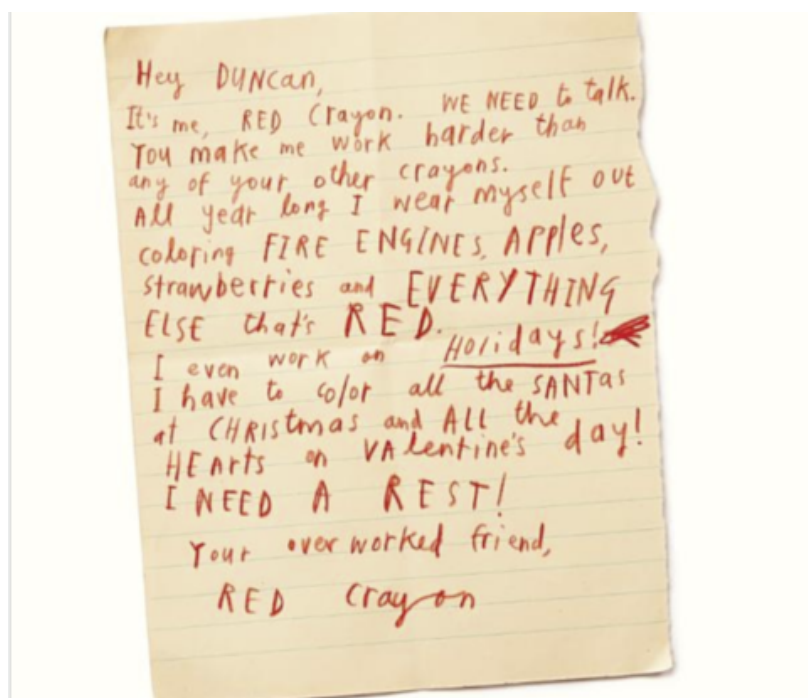 Hey DUNCan,
It's me, RED Crayon. WE NEED to talk.
You make me work harder than
any of your other crayons.
All year long I wear myself out
coloring FIRE ENGINES, Apples,
strawberries and EVERYTHING
ELSE that's RED.
I even work on Holidays!
I have to color all the SANTas
at CHRIStmas and ALL the
HEArts on VAlentine's day!
I NEED A REST!
Your overworked friend,
RED Crayon